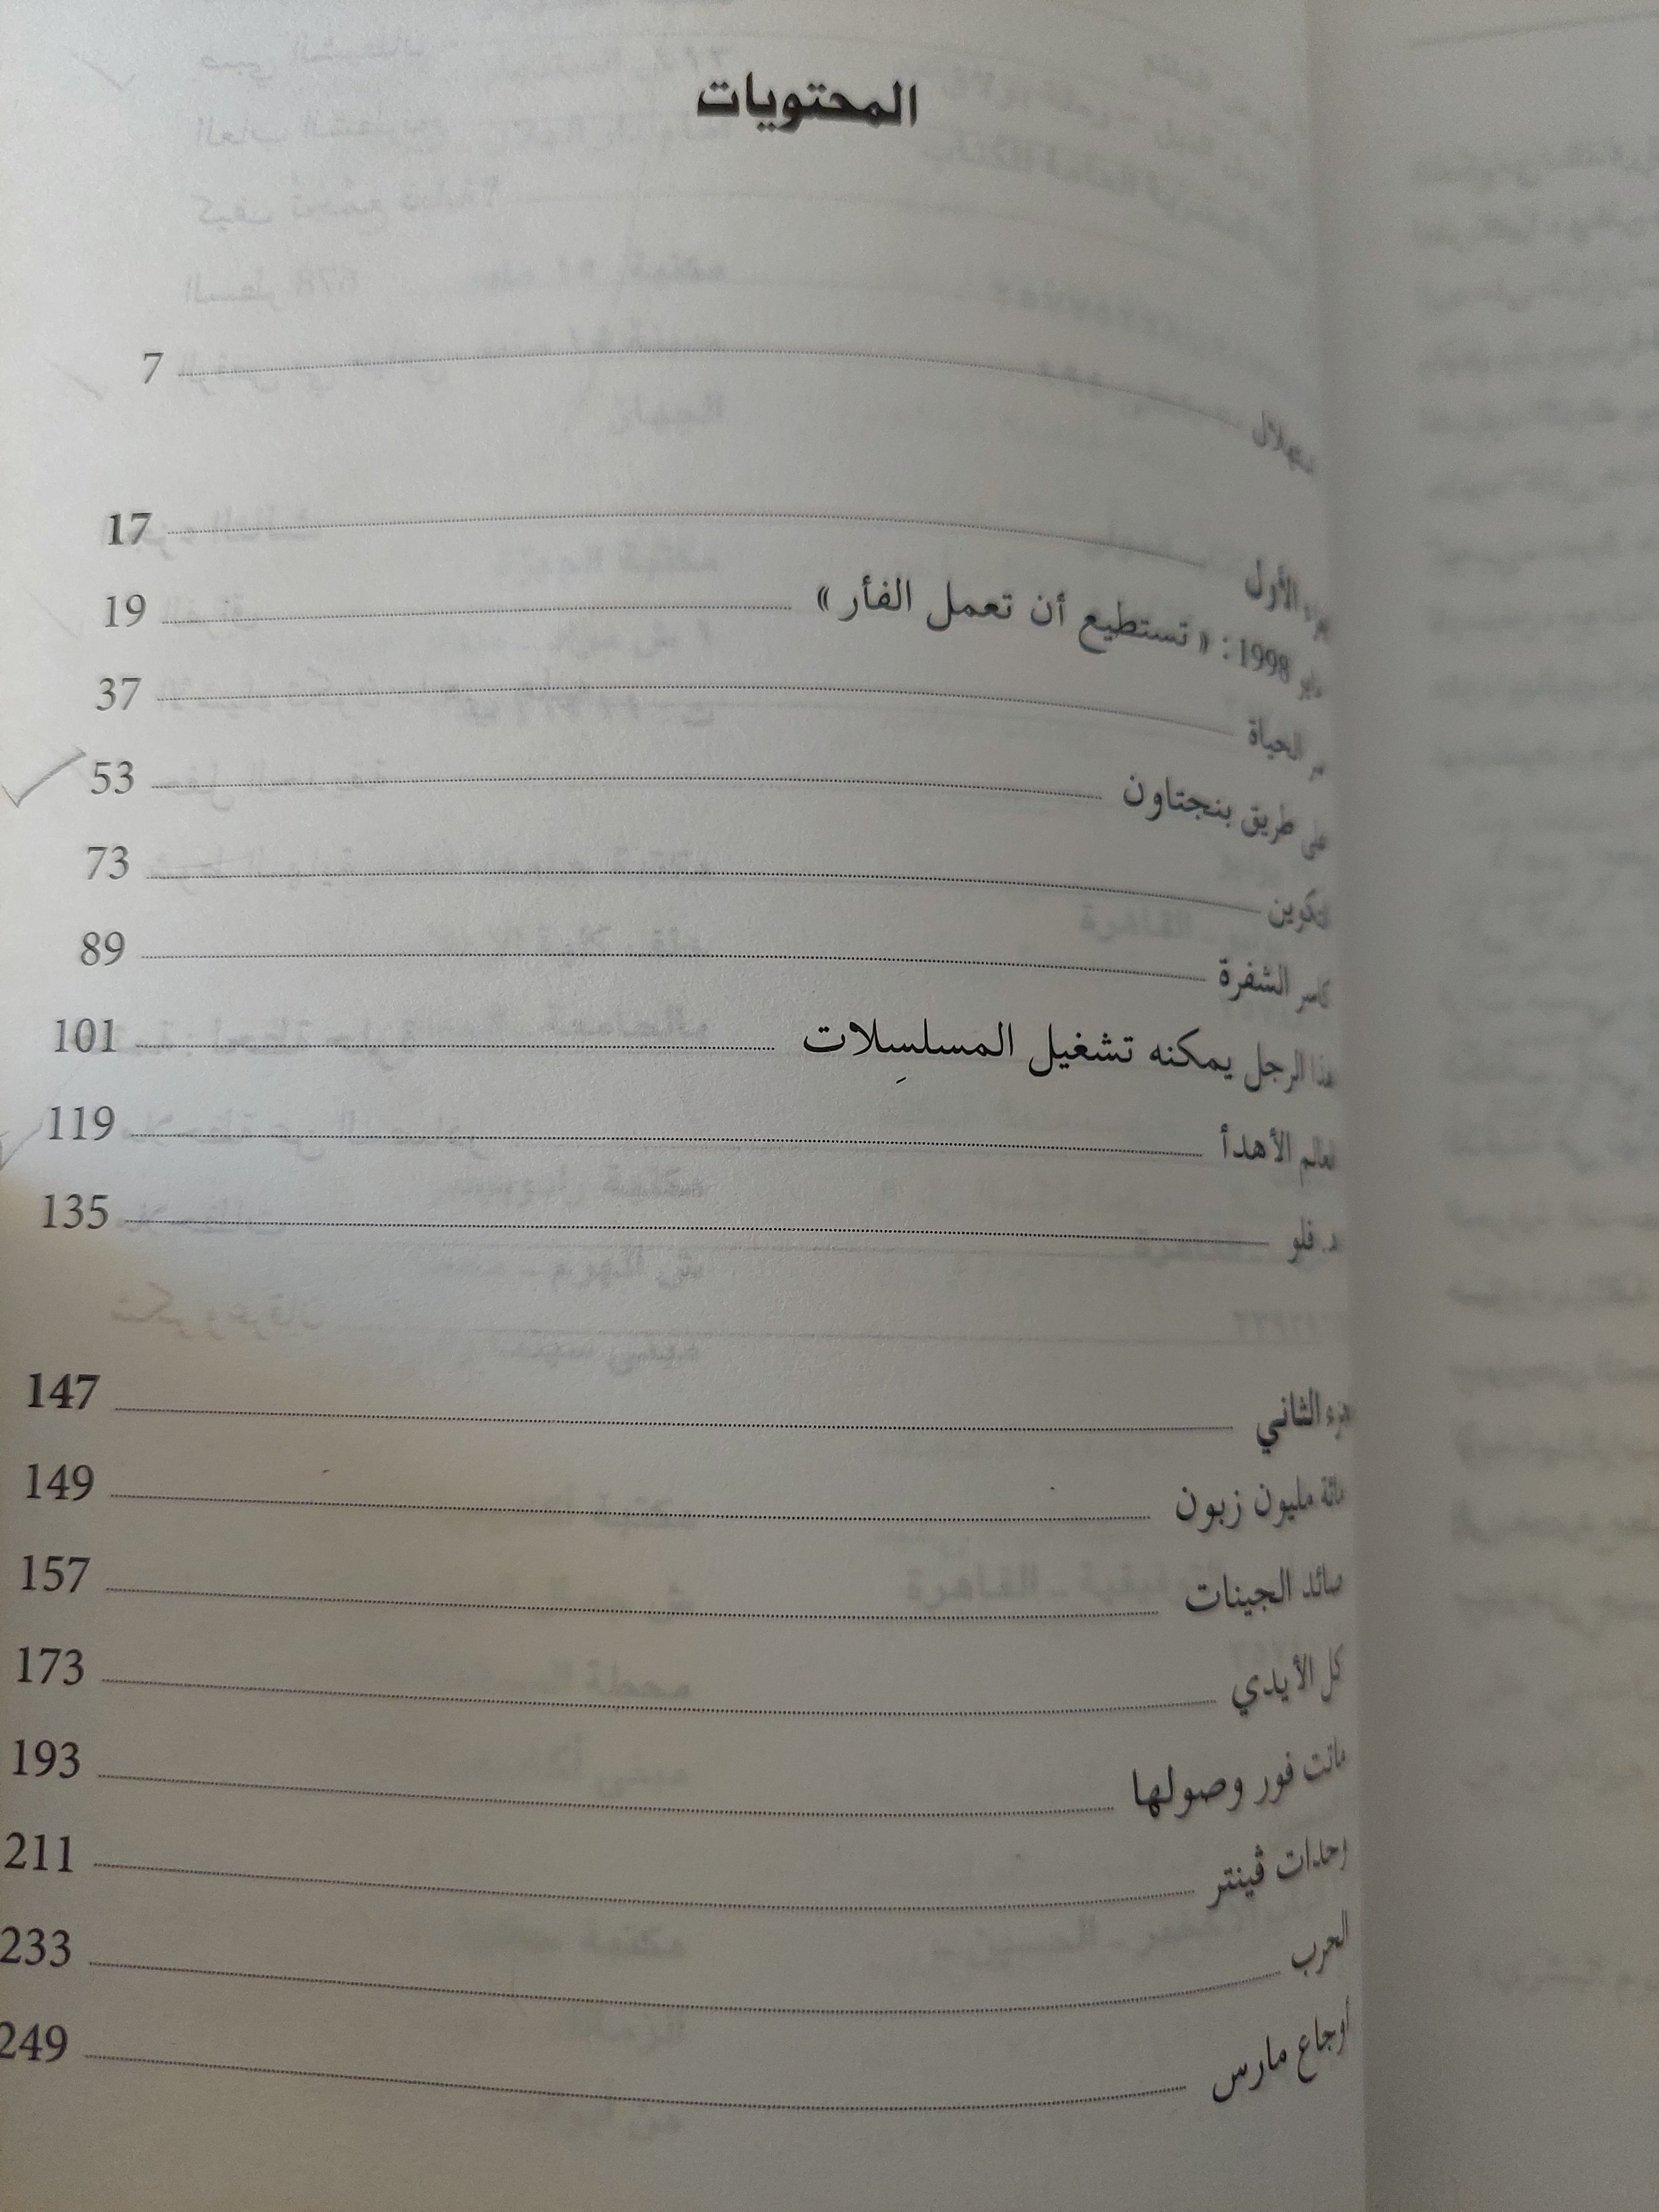 المحتويات
7
الأول 17
1998: « تستطيع أن تعمل الفأر » 19
الحياة 37
على طريق بنجتاون 53
التكوين 73
كاسر الشفرة 89
هذا الرجل يمكنه تشغيل المسلسِلات 101
العالم الأهدأ 119
د. فلو 135
الجزء الثاني 147
مائة مليون زبون 149
صائد الجينات 157
كل الأيدي 173
ماتت فور وصولها 193
وحدات ڤينتر 211
الحرب 233
أوجاع مارس 249